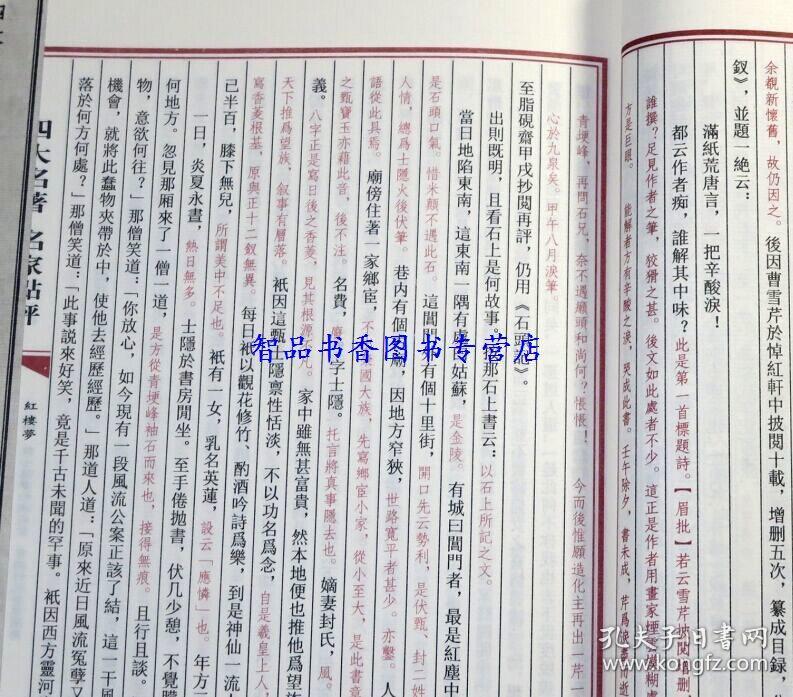 余覩新懷舊，故仍因之。後因曹雪芹於悼紅軒中披閱十載，增刪五次，纂成目錄，
釵》，並題一絕云：
滿紙荒唐言，一把辛酸淚！
都云作者痴，誰解其中味？此是第一首標題詩。【眉批】若云雪芹披閱增刪
誰撰？足見作者之筆，狡猾之甚。後文如此處者不少。這正是作者用畫家煙雲模糊
方是巨眼。能解者方有辛酸之淚，哭成此書。壬午除夕，書未成，芹爲淚盡而
青埂峰，再問石兄，奈不遇癩頭和尚何？悵悵！今而後惟願造化主再出一芹一
心於九泉矣。甲午八月淚筆。
至脂硯齋甲戌抄閱再評，仍用《石頭記》。
出則既明，且看石上是何故事。按那石上書云：以石上所記之文。
當日地陷東南，這東南一隅有處曰姑蘇，是金陵。有城曰閶門者，最是紅塵中
是石頭口氣。惜米顛不遇此石。這閶門外有個十里街，開口先云勢利，是伏甄、封二姓
人情，總爲士隱火後伏筆。巷內有個古廟，因地方窄狹，世路寬平者甚少。亦鑿。人
語從此具焉。廟傍住著一家鄉宦，不出榮國大族，先寫鄉宦小家，從小至大，是此書章
之甄寶玉亦藉此音，後不注。名費，廢。字士隱。托言將真事隱去也。嫡妻封氏，風。
義。八字正是寫日後之香菱，見其根源不凡。家中雖無甚富貴，然本地便也推他爲望族
天下推爲望族，叙事有層落。衹因這甄士隱禀性恬淡，不以功名爲念，自是羲皇上人，
寫香菱根基，原與正十二釵無異。每日衹以觀花修竹、酌酒吟詩爲樂，到是神仙一流
己半百，膝下無兒，所謂美中不足也。衹有一女，乳名英蓮，設云「應憐」也。年方
一日，炎夏永晝，熱日無多。士隱於書房閒坐。至手倦拋書，伏几少憩，不覺朦
何地方。忽見那廂來了一僧一道，是方從青埂峰袖石而來也，接得無痕。且行且談。
物，意欲何往？」那僧笑道：「你放心，如今現有一段風流公案正該了結，這一干風
機會，就將此蠢物夾帶於中，使他去經歷經歷。」那道人道：「原來近日風流冤孽又
落於何方何處？」那僧笑道：「此事說來好笑，竟是千古未聞的罕事。衹因西方靈河
四大名著 名家點評
紅樓夢
智品书香图书专营店
孔夫子旧书网
kongfz.com